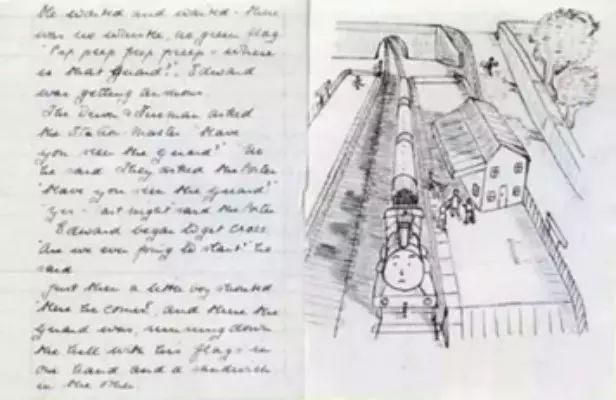 He waited and waited - there
was no whistle, no green flag
"Peep peep peep peep - where
is that guard?". Edward
was getting anxious.
The Driver & Fireman asked
the Station Master "Have
you seen the guard?" "No"
he said They asked the Porter
"Have you seen the guard?"
"Yes - last night" said the Porter
Edward began to get cross.
"Are we ever going to start" he
said
Just then a little boy shouted
"Here he comes!, and there the
guard was, running down
the hill with his flags in
one hand and a sandwich
in the other.